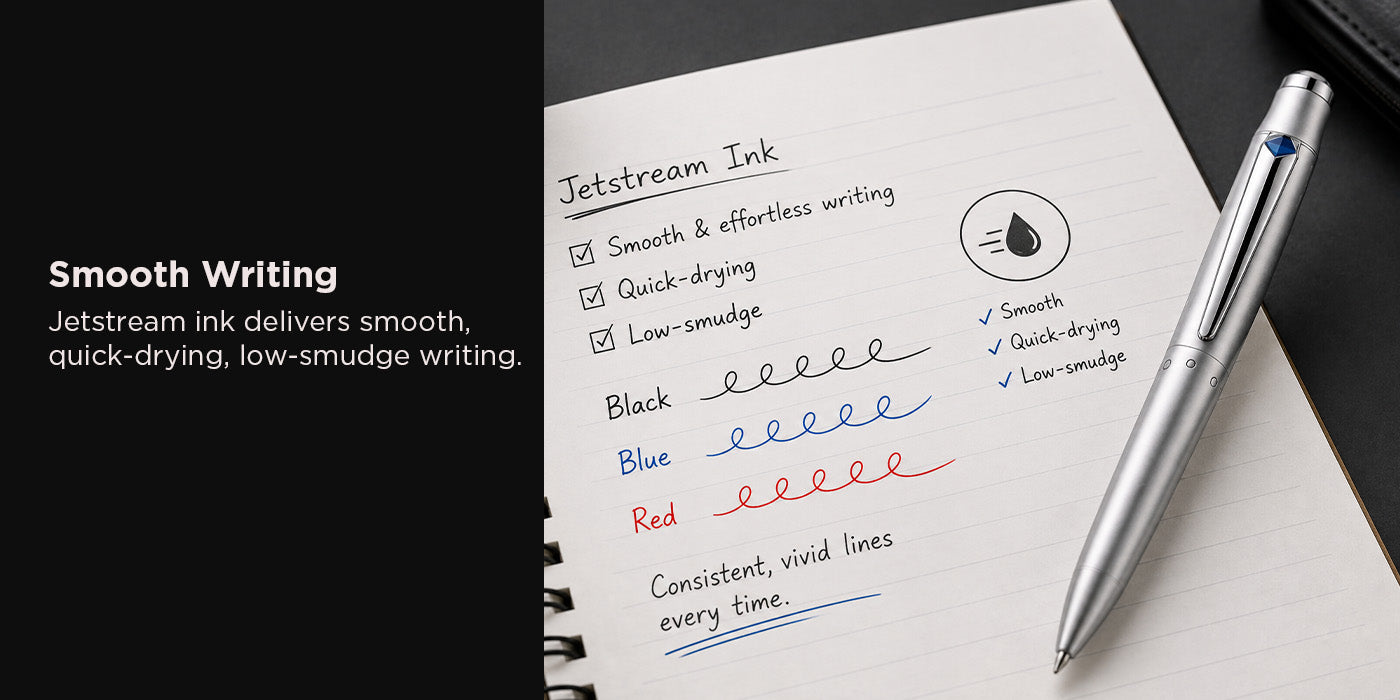 Smooth Writing
Jetstream ink delivers smooth,
quick-drying, low-smudge writing.
Jetstream Ink
Smooth & effortless writing
Quick-drying
Low-smudge
Black
Blue
Red
Consistent, vivid lines
every time.
Smooth
Quick-drying
Low-smudge